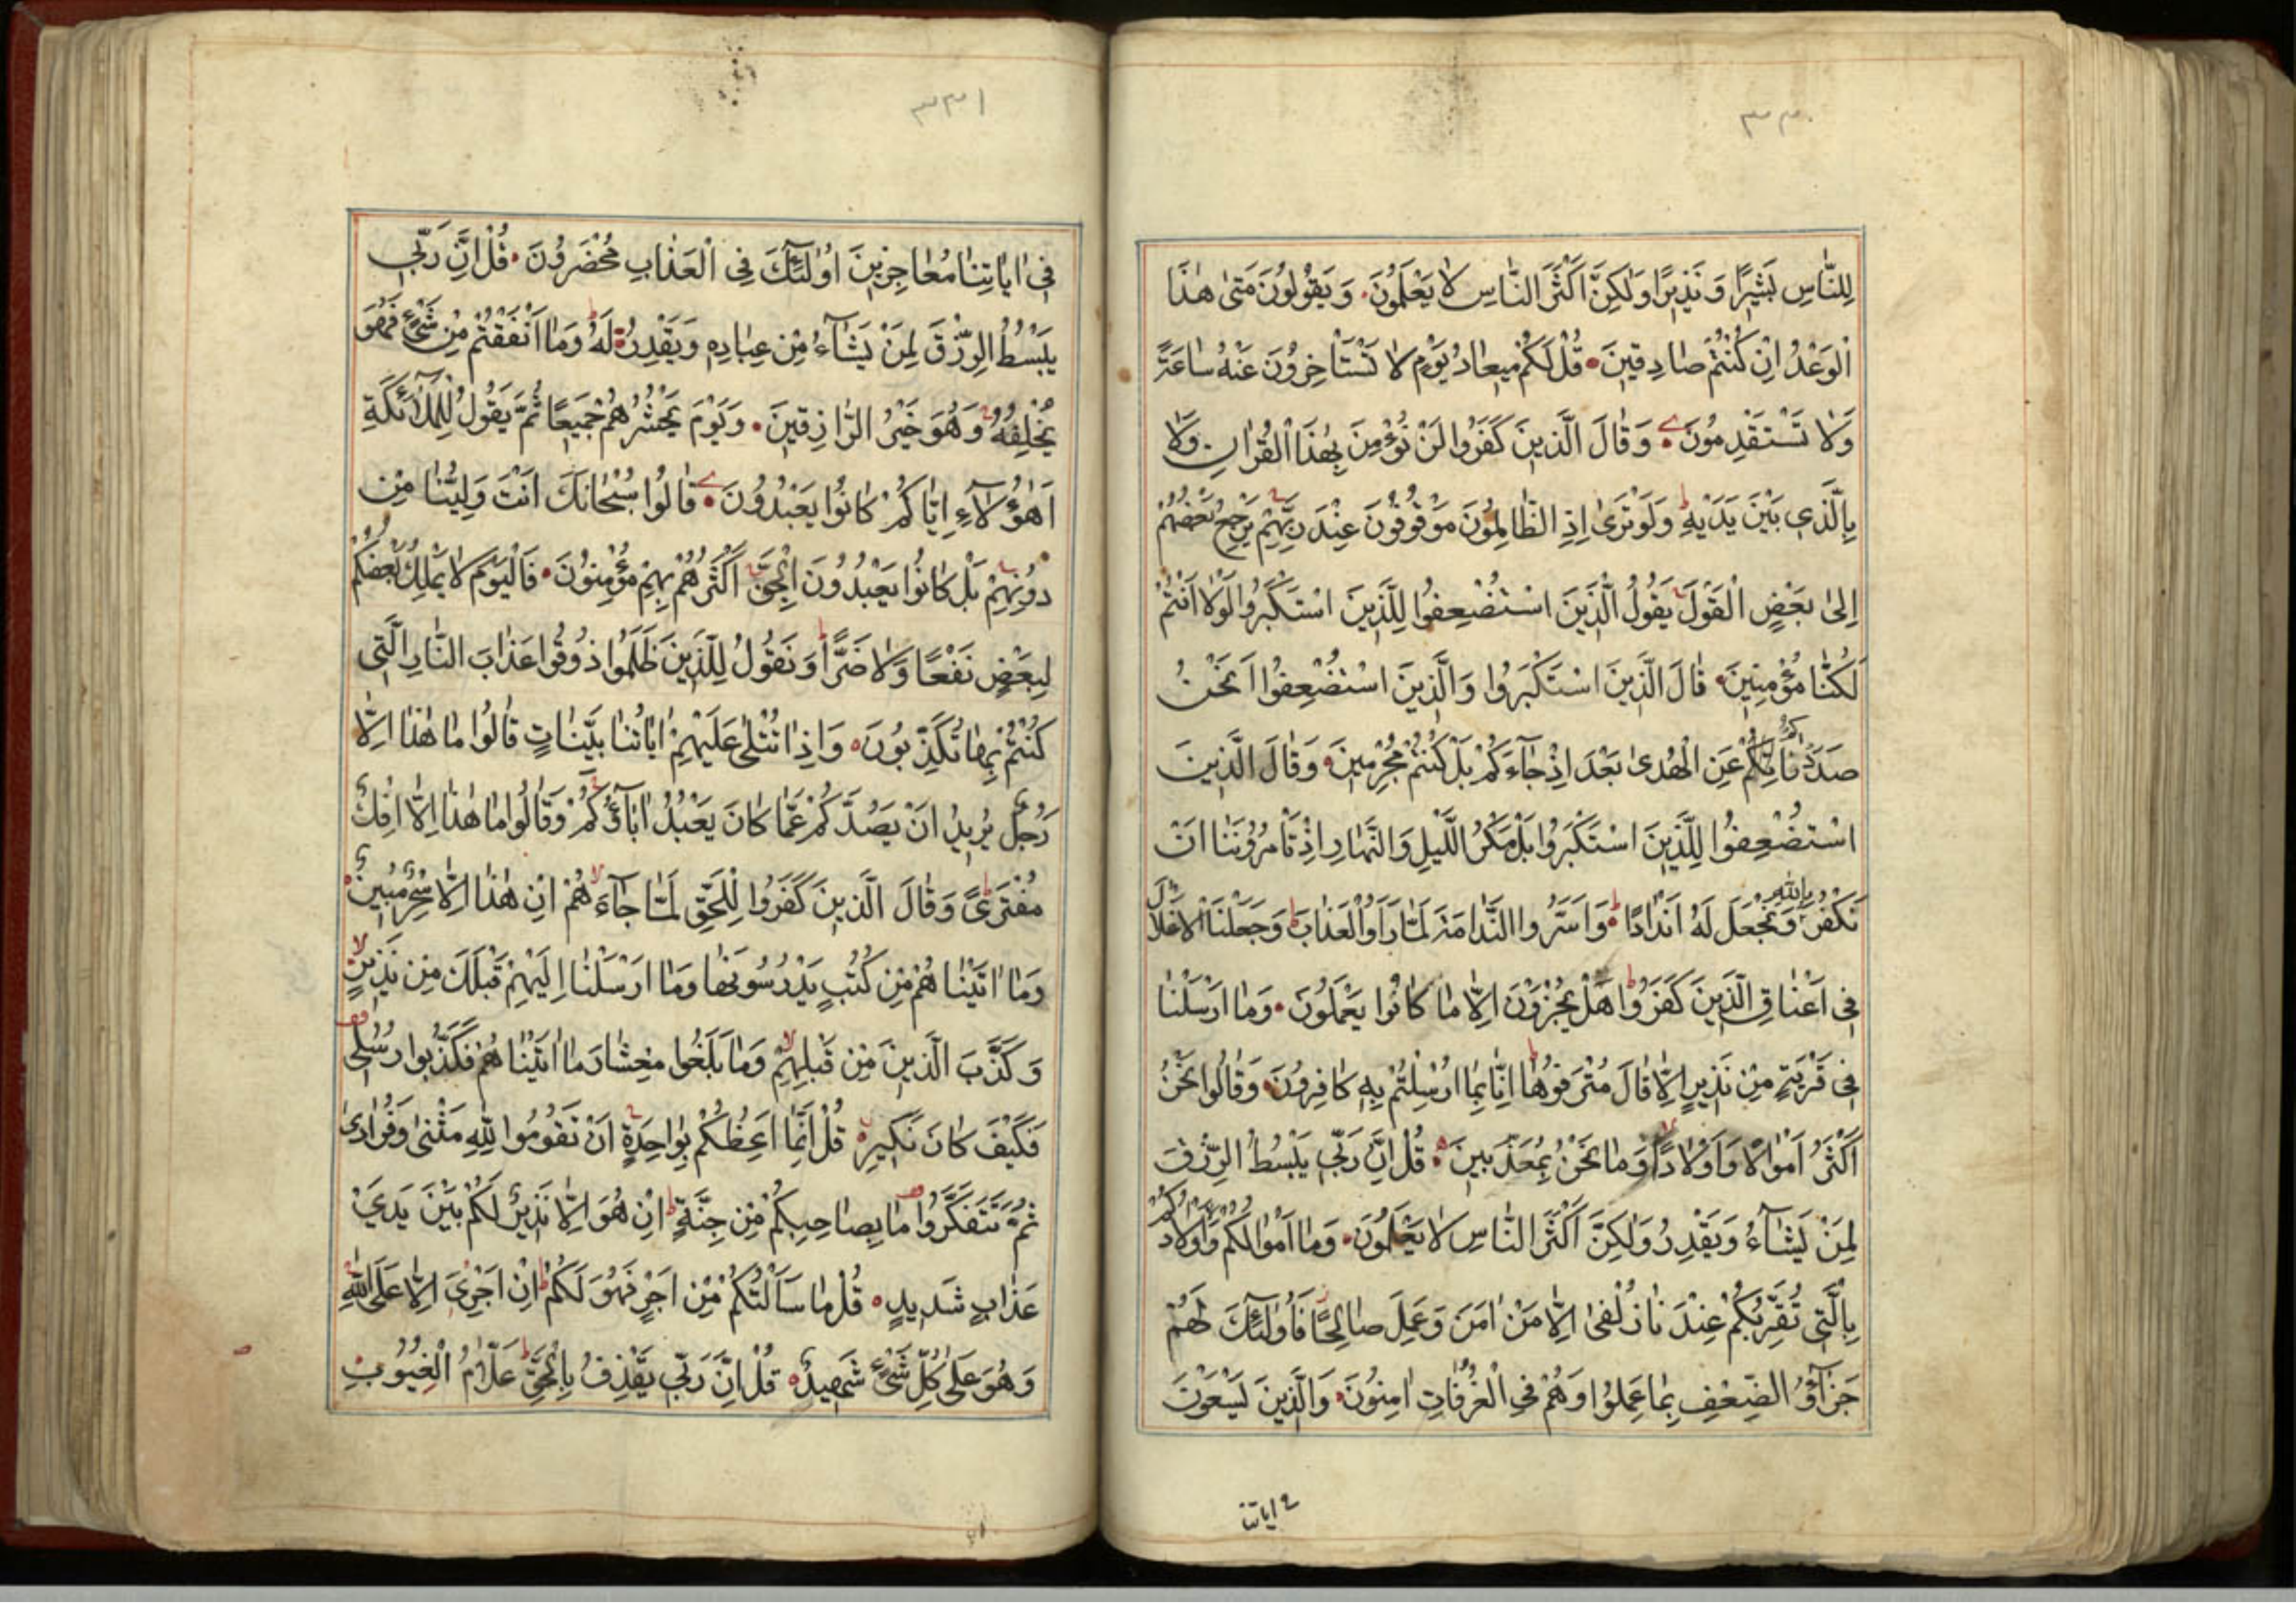 ٣٣٠
لِلنَّاسِ بَشِيرًا وَنَذِيرًا وَلَكِنَّ أَكْثَرَ النَّاسِ لَا يَعْلَمُونَ وَيَقُولُونَ مَتَىٰ هٰذَا
الْوَعْدُ اِنْ كُنْتُمْ صَادِقِينَ قُلْ لَكُمْ مِيعَادُ يَوْمٍ لَا تَسْتَأْخِرُونَ عَنْهُ سَاعَةً
وَلَا تَسْتَقْدِمُونَ وَقَالَ الَّذِينَ كَفَرُوا لَنْ نُؤْمِنَ بِهٰذَا الْقُرْاٰنِ وَلَا
بِالَّذِي بَيْنَ يَدَيْهِ وَلَوْ تَرَىٰ اِذِ الظَّالِمُونَ مَوْقُوفُونَ عِنْدَ رَبِّهِمْ يَرْجِعُ بَعْضُهُمْ
اِلىٰ بَعْضٍ الْقَوْلَ يَقُولُ الَّذِينَ اسْتُضْعِفُوا لِلَّذِينَ اسْتَكْبَرُوا لَوْلَا اَنْتُمْ
لَكُنَّا مُؤْمِنِينَ قَالَ الَّذِينَ اسْتَكْبَرُوا وَالَّذِينَ اسْتُضْعِفُوا اَنَحْنُ
صَدَدْنَاكُمْ عَنِ الْهُدىٰ بَعْدَ اِذْ جَآءَكُمْ بَلْ كُنْتُمْ مُجْرِمِينَ وَقَالَ الَّذِينَ
اسْتُضْعِفُوا لِلَّذِينَ اسْتَكْبَرُوا بَلْ مَكْرُ الَّيْلِ وَالنَّهَارِ اِذْ تَأْمُرُونَنَا اَنْ
نَكْفُرَ بِاللّٰهِ وَنَجْعَلَ لَهُ اَنْدَادًا وَاَسَرُّوا النَّدَامَةَ لَمَّا رَاَوُا الْعَذَابَ وَجَعَلْنَا الْاَغْلَالَ
فِى اَعْنَاقِ الَّذِينَ كَفَرُوا هَلْ يُجْزَوْنَ اِلَّا مَا كَانُوا يَعْمَلُونَ وَمَا اَرْسَلْنَا
فِى قَرْيَةٍ مِنْ نَذِيرٍ اِلَّا قَالَ مُتْرَفُوهَا اِنَّا بِمَا اُرْسِلْتُمْ بِهِ كَافِرُونَ وَقَالُوا نَحْنُ
اَكْثَرُ اَمْوَالًا وَاَوْلَادًا وَمَا نَحْنُ بِمُعَذَّبِينَ قُلْ اِنَّ رَبِّي يَبْسُطُ الرِّزْقَ
لِمَنْ يَشَآءُ وَيَقْدِرُ وَلٰكِنَّ اَكْثَرَ النَّاسِ لَا يَعْلَمُونَ وَمَا اَمْوَالُكُمْ وَلَا اَوْلَادُكُمْ
بِالَّتِي تُقَرِّبُكُمْ عِنْدَنَا زُلْفىٰ اِلَّا مَنْ اٰمَنَ وَعَمِلَ صَالِحًا فَاُولٰٓئِكَ لَهُمْ
جَزَآؤُ الضِّعْفِ بِمَا عَمِلُوا وَهُمْ فِي الْغُرُفَاتِ اٰمِنُونَ وَالَّذِينَ يَسْعَوْنَ
فى اياتنا
٣٣١
فِى اٰيَاتِنَا مُعَاجِزِينَ اُولٰٓئِكَ فِى الْعَذَابِ مُحْضَرُونَ قُلْ اِنَّ رَبِّي
يَبْسُطُ الرِّزْقَ لِمَنْ يَشَآءُ مِنْ عِبَادِهِ وَيَقْدِرُ لَهُ وَمَا اَنْفَقْتُمْ مِنْ شَيْءٍ فَهُوَ
يُخْلِفُهُ وَهُوَ خَيْرُ الرَّازِقِينَ وَيَوْمَ يَحْشُرُهُمْ جَمِيعًا ثُمَّ يَقُولُ لِلْمَلٰٓئِكَةِ
اَهٰٓؤُلَآءِ اِيَّاكُمْ كَانُوا يَعْبُدُونَ قَالُوا سُبْحَانَكَ اَنْتَ وَلِيُّنَا مِنْ
دُونِهِمْ بَلْ كَانُوا يَعْبُدُونَ الْجِنَّ اَكْثَرُهُمْ بِهِمْ مُؤْمِنُونَ فَالْيَوْمَ لَا يَمْلِكُ بَعْضُكُمْ
لِبَعْضٍ نَفْعًا وَلَا ضَرًّا وَنَقُولُ لِلَّذِينَ ظَلَمُوا ذُوقُوا عَذَابَ النَّارِ الَّتِي
كُنْتُمْ بِهَا تُكَذِّبُونَ وَاِذَا تُتْلىٰ عَلَيْهِمْ اٰيَاتُنَا بَيِّنَاتٍ قَالُوا مَا هٰذَا اِلَّا
رَجُلٌ يُرِيدُ اَنْ يَصُدَّكُمْ عَمَّا كَانَ يَعْبُدُ اٰبَآؤُكُمْ وَقَالُوا مَا هٰذَا اِلَّا اِفْكٌ
مُفْتَرًى وَقَالَ الَّذِينَ كَفَرُوا لِلْحَقِّ لَمَّا جَآءَهُمْ اِنْ هٰذَا اِلَّا سِحْرٌ مُبِينٌ
وَمَا اٰتَيْنَاهُمْ مِنْ كُتُبٍ يَدْرُسُونَهَا وَمَا اَرْسَلْنَا اِلَيْهِمْ قَبْلَكَ مِنْ نَذِيرٍ
وَكَذَّبَ الَّذِينَ مِنْ قَبْلِهِمْ وَمَا بَلَغُوا مِعْشَارَ مَا اٰتَيْنَاهُمْ فَكَذَّبُوا رُسُلِي
فَكَيْفَ كَانَ نَكِيرِ قُلْ اِنَّمَا اَعِظُكُمْ بِوَاحِدَةٍ اَنْ تَقُومُوا لِلّٰهِ مَثْنىٰ وَفُرَادىٰ
ثُمَّ تَتَفَكَّرُوا مَا بِصَاحِبِكُمْ مِنْ جِنَّةٍ اِنْ هُوَ اِلَّا نَذِيرٌ لَكُمْ بَيْنَ يَدَيْ
عَذَابٍ شَدِيدٍ قُلْ مَا سَاَلْتُكُمْ مِنْ اَجْرٍ فَهُوَ لَكُمْ اِنْ اَجْرِيَ اِلَّا عَلَى اللّٰهِ
وَهُوَ عَلىٰ كُلِّ شَيْءٍ شَهِيدٌ قُلْ اِنَّ رَبِّي يَقْذِفُ بِالْحَقِّ عَلَّامُ الْغُيُوبِ